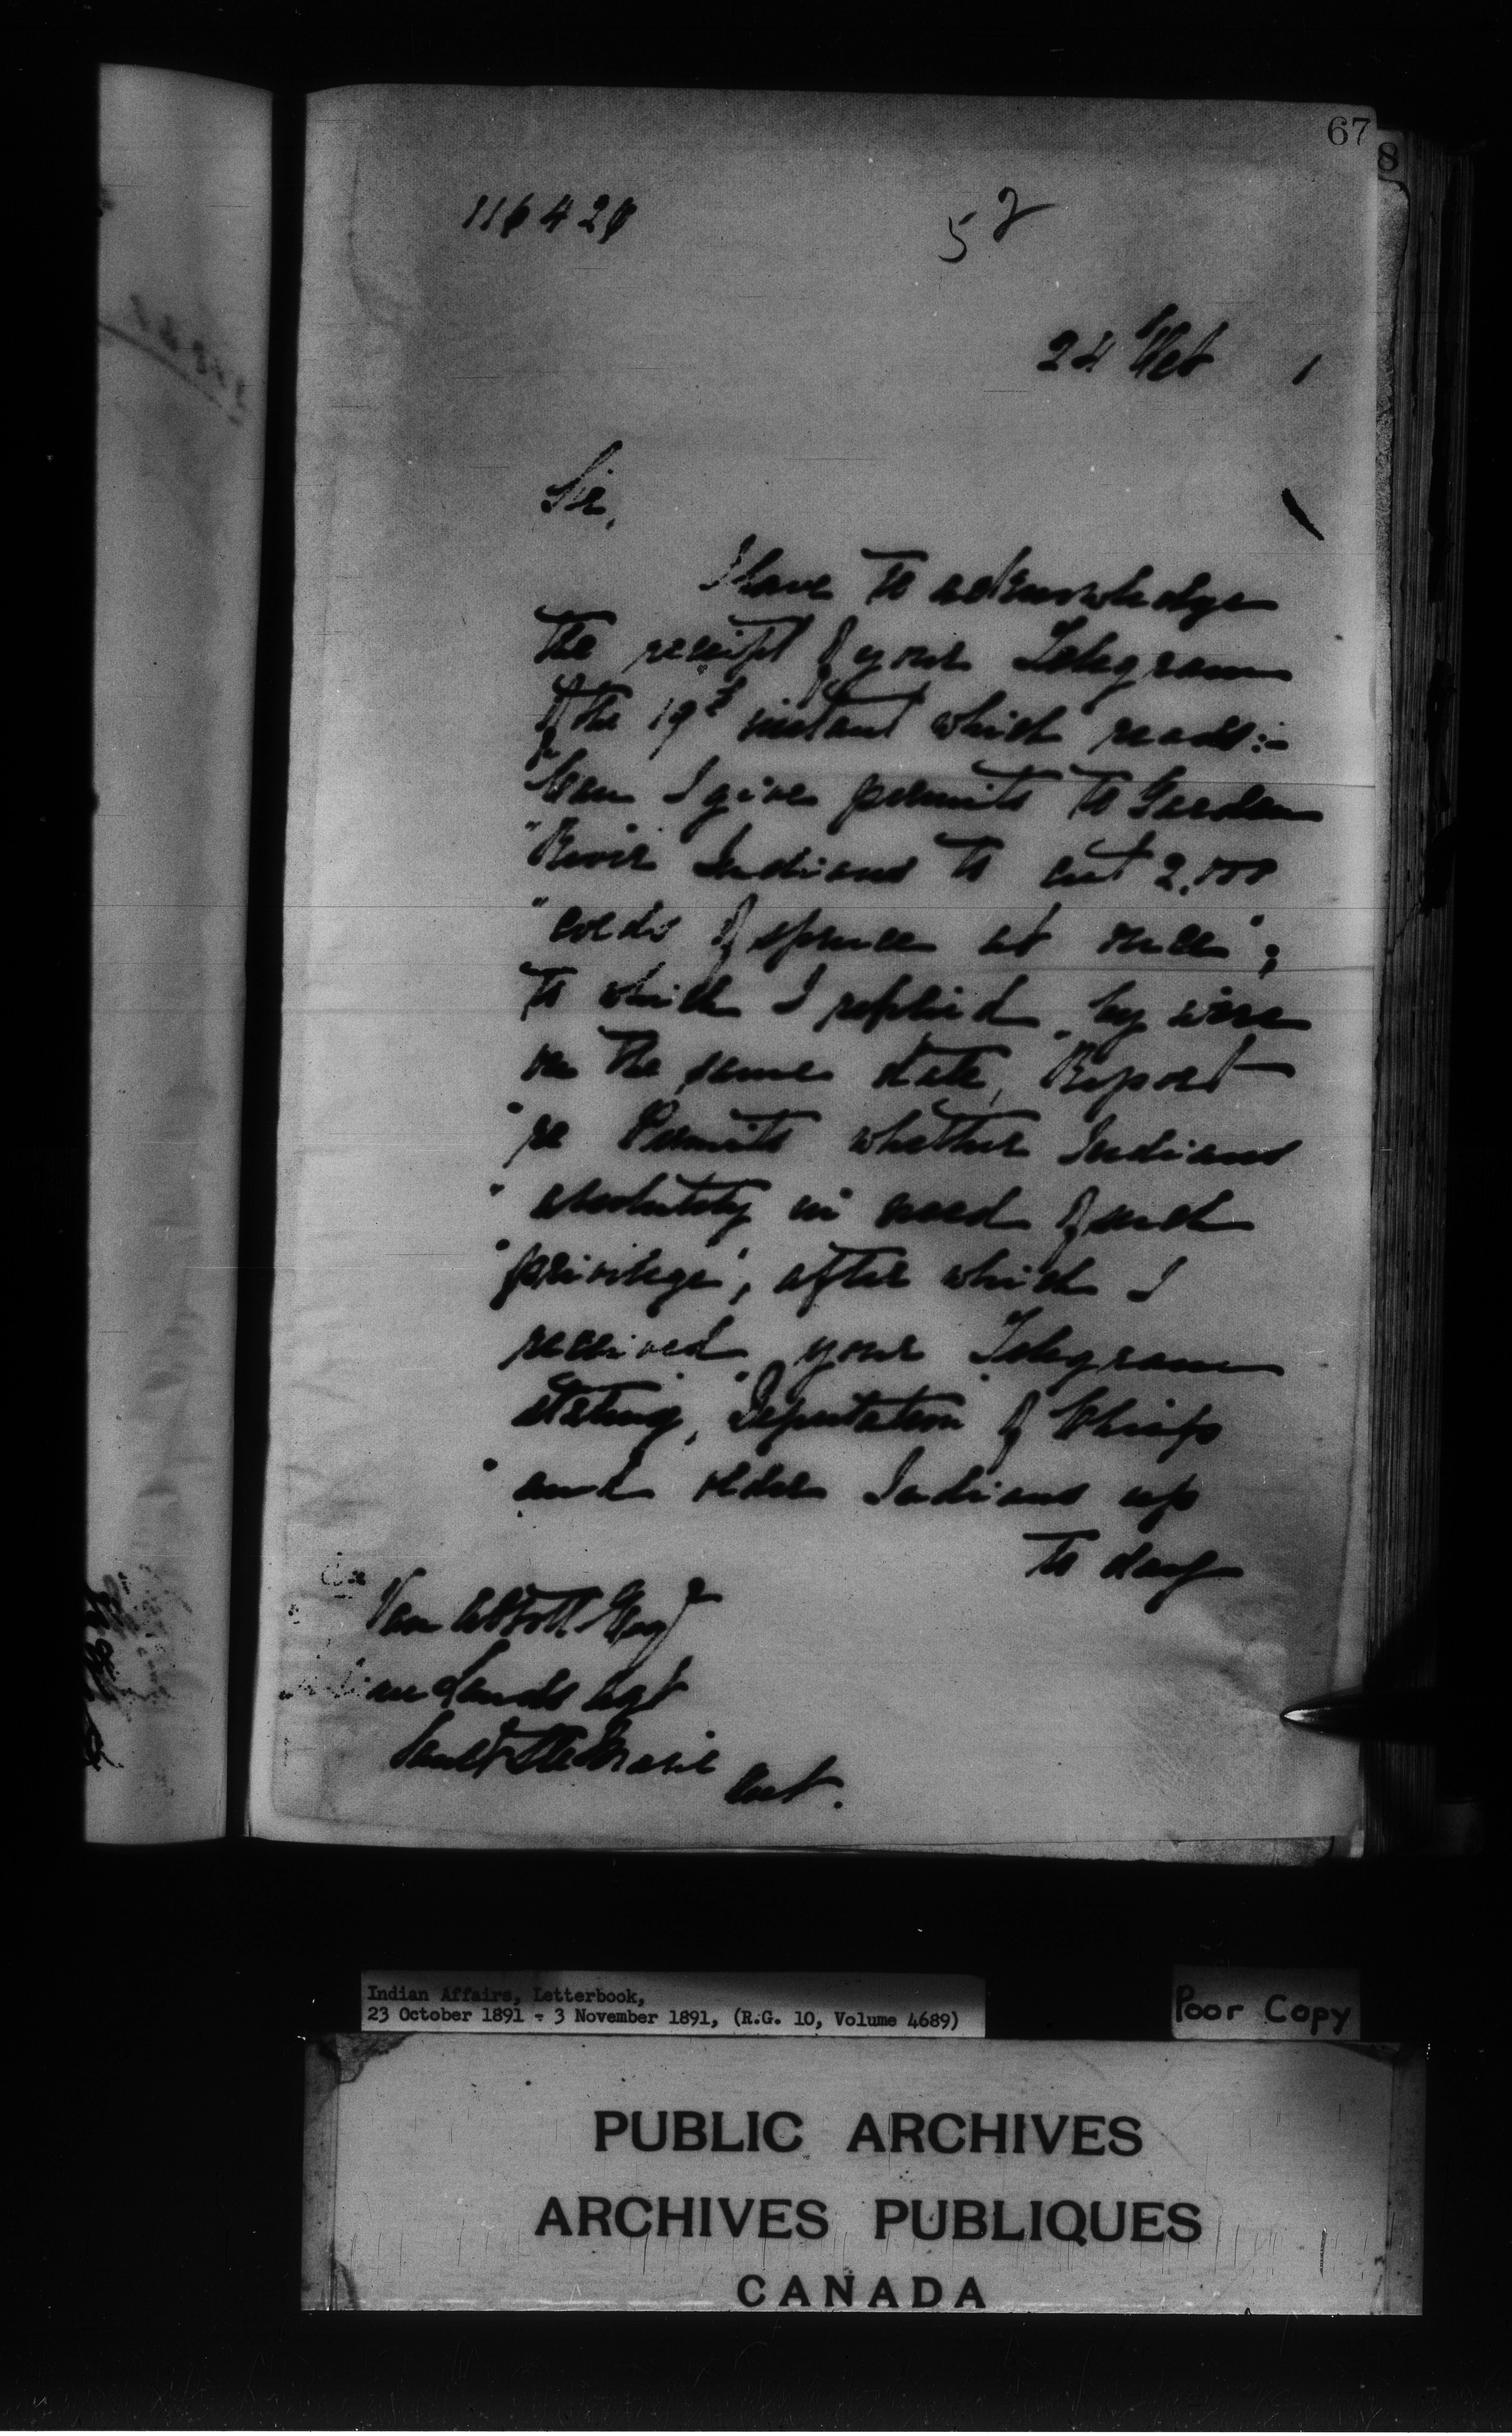 67
8
116420
52
24 Oct 1
Sir,
I have to acknowledge
the receipt of your Telegram
of the 19th instant which reads:-
"Can I give permits to Garden
"River Indians to cut 2,000
"cords of spruce at once";
to which I replied by wire
on the same date, "Report
"re Permits whether Indians
"absolutely in need of such
"privilege", after which I
received your Telegram
stating, "Deputation of Chiefs
"and older Indians up
to day
Van Abbott Esqr
Lands Agt
Sault Ste Marie
Ont.
Indian Affairs, Letterbook,
23 October 1891 - 3 November 1891, (R.G. 10, Volume 4689)
Poor Copy
PUBLIC ARCHIVES
ARCHIVES PUBLIQUES
CANADA